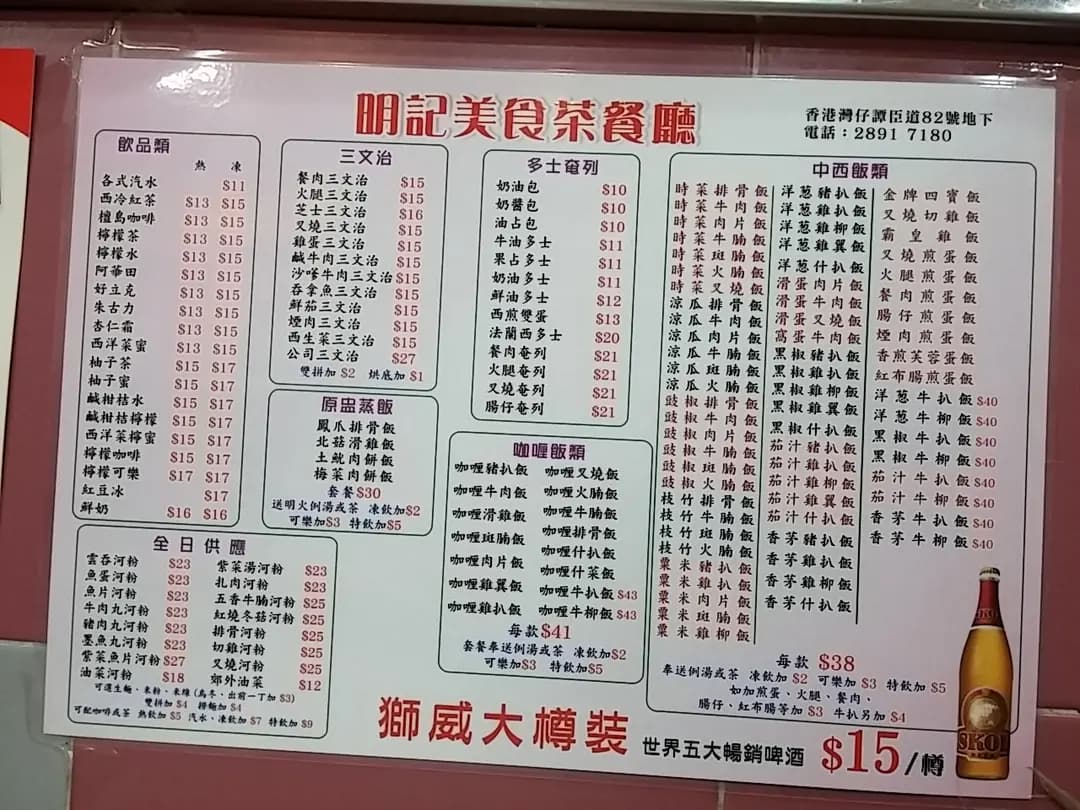 明記美食茶餐廳
香港灣仔譚臣道82號地下
電話：2891 7180
飲品類
熱 凍
各式汽水 $11
西冷紅茶 $13 $15
檀島咖啡 $13 $15
檸檬茶 $13 $15
檸檬水 $13 $15
阿華田 $13 $15
好立克 $13 $15
朱古力 $13 $15
杏仁霜 $13 $15
西洋菜蜜 $13 $15
柚子茶 $15 $17
柚子蜜 $15 $17
鹹柑桔水 $15 $17
鹹柑桔檸檬 $15 $17
西洋菜檸蜜 $15 $17
檸檬咖啡 $15 $17
檸檬可樂 $17 $17
紅豆冰 $17
鮮奶 $16 $16
三文治
餐肉三文治 $15
火腿三文治 $15
芝士三文治 $16
叉燒三文治 $15
雞蛋三文治 $15
鹹牛肉三文治 $15
沙嗲牛肉三文治 $15
吞拿魚三文治 $15
鮮茄三文治 $15
煙肉三文治 $15
西生菜三文治 $15
公司三文治 $27
雙拼加 $2 烘底加 $1
原盅蒸飯
鳳爪排骨飯
北菇滑雞飯
土魷肉餅飯
梅菜肉餅飯
套餐$30
送明火例湯或茶 凍飲加$2
可樂加$3 特飲加$5
多士奄列
奶油包 $10
奶醬包 $10
油占包 $10
牛油多士 $11
果占多士 $11
奶油多士 $11
鮮油多士 $12
西煎雙蛋 $13
法蘭西多士 $20
餐肉奄列 $21
火腿奄列 $21
叉燒奄列 $21
腸仔奄列 $21
咖喱飯類
咖喱豬扒飯 咖喱叉燒飯
咖喱牛肉飯 咖喱火腩飯
咖喱滑雞飯 咖喱牛腩飯
咖喱斑腩飯 咖喱排骨飯
咖喱肉片飯 咖喱什扒飯
咖喱雞翼飯 咖喱什菜飯
咖喱雞扒飯 咖喱牛扒飯 $43
咖喱牛柳飯 $43
每款$41
套餐奉送例湯或茶 凍飲加$2
可樂加$3 特飲加$5
全日供應
雲吞河粉 $23 紫菜湯河粉 $23
魚蛋河粉 $23 扎肉河粉 $23
魚片河粉 $23 五香牛腩河粉 $25
牛肉丸河粉 $23 紅燒冬菇河粉 $25
豬肉丸河粉 $23 排骨河粉 $25
墨魚丸河粉 $23 切雞河粉 $25
紫菜魚片河粉 $27 叉燒河粉 $25
油菜河粉 $18 郊外油菜 $12
可選生麵、米粉、米線 (烏冬、出前一丁加 $3)
雙拼加 $4 撈麵加 $4
可配咖啡或茶 熱飲加 $5 汽水、凍飲加 $7 特飲加 $9
中西飯類
時菜排骨飯
時菜牛肉飯
時菜肉片飯
時菜牛腩飯
時菜斑腩飯
時菜火腩飯
時菜叉燒飯
涼瓜排骨飯
涼瓜牛肉飯
涼瓜肉片飯
涼瓜牛腩飯
涼瓜斑腩飯
涼瓜火腩飯
豉椒排骨飯
豉椒牛肉飯
豉椒肉片飯
豉椒牛腩飯
豉椒斑腩飯
豉椒火腩飯
枝竹排骨飯
枝竹牛腩飯
枝竹斑腩飯
枝竹火腩飯
粟米豬扒飯
粟米雞扒飯
粟米肉片飯
粟米斑腩飯
粟米雞柳飯
洋葱豬扒飯
洋葱雞扒飯
洋葱雞柳飯
洋葱雞翼飯
洋葱什扒飯
滑蛋肉片飯
滑蛋牛肉飯
滑蛋叉燒飯
窩蛋牛肉飯
黑椒豬扒飯
黑椒雞柳飯
黑椒雞翼飯
黑椒什扒飯
茄汁豬扒飯
茄汁雞扒飯
茄汁雞柳飯
茄汁雞翼飯
茄汁什扒飯
香茅豬扒飯
香茅雞扒飯
香茅雞柳飯
香茅什扒飯
金牌四寶飯
叉燒切雞飯
霸皇雞飯
叉燒煎蛋飯
火腿煎蛋飯
餐肉煎蛋飯
腸仔煎蛋飯
煙肉煎蛋飯
香煎芙蓉蛋飯
紅布腸煎蛋飯
洋葱牛扒飯 $40
洋葱牛柳飯 $40
黑椒牛扒飯 $40
黑椒牛柳飯 $40
茄汁牛扒飯 $40
茄汁牛柳飯 $40
香茅牛扒飯 $40
香茅牛柳飯 $40
每款 $38
奉送例湯或茶 凍飲加 $2 可樂加 $3 特飲加 $5
如加煎蛋、火腿、餐肉、
腸仔、紅布腸等加 $3 牛扒另加 $4
獅威大樽裝 世界五大暢銷啤酒 $15/樽
SKOL